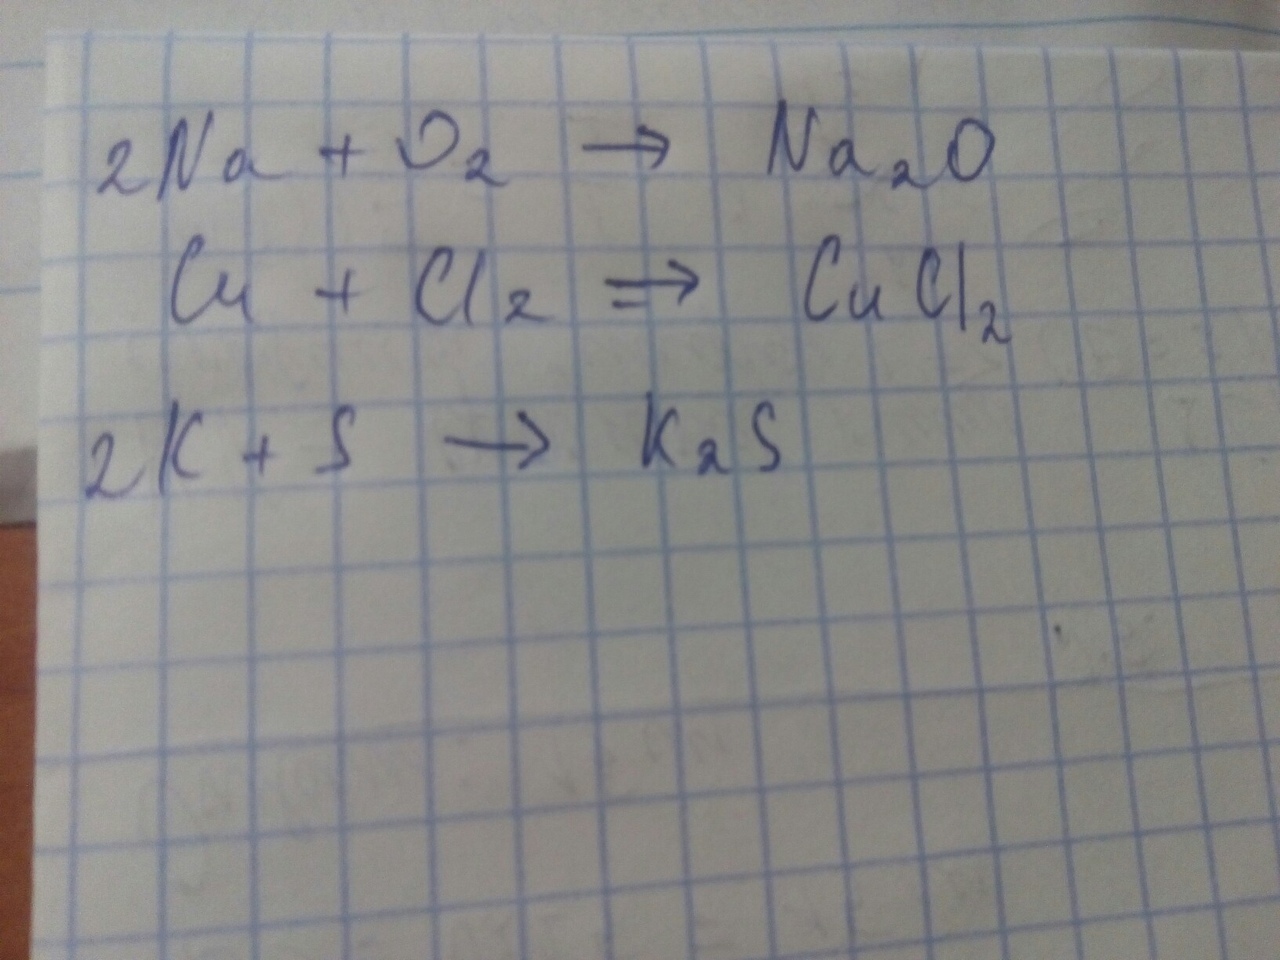 2Na + O₂ → Na₂O
Cu + Cl₂ ⇒ CuCl₂
2K + S → K₂S